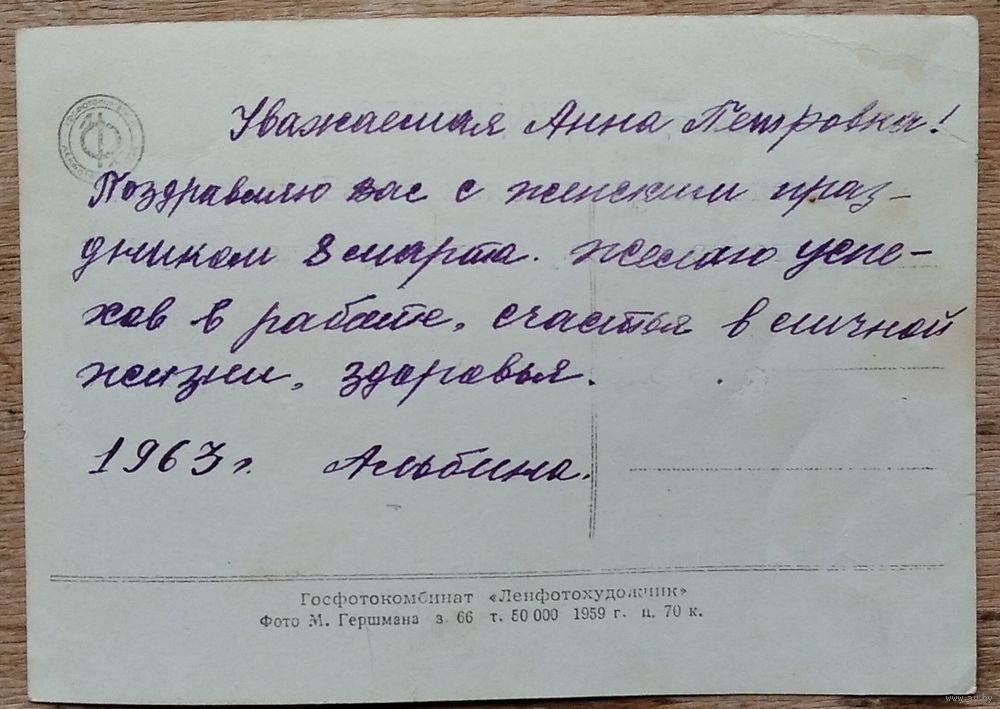 Уважаемая Анна Петровна!
Поздравляю вас с женским праз-
дником 8 марта. желаю успе-
хов в работе, счастья в личной
жизни, здоровья.
1963 г. Альбина.
Госфотокомбинат «Ленфотохудожник»
Фото М. Гершмана з. 66 т. 50 000 1959 г. ц. 70 к.
www.ay.by